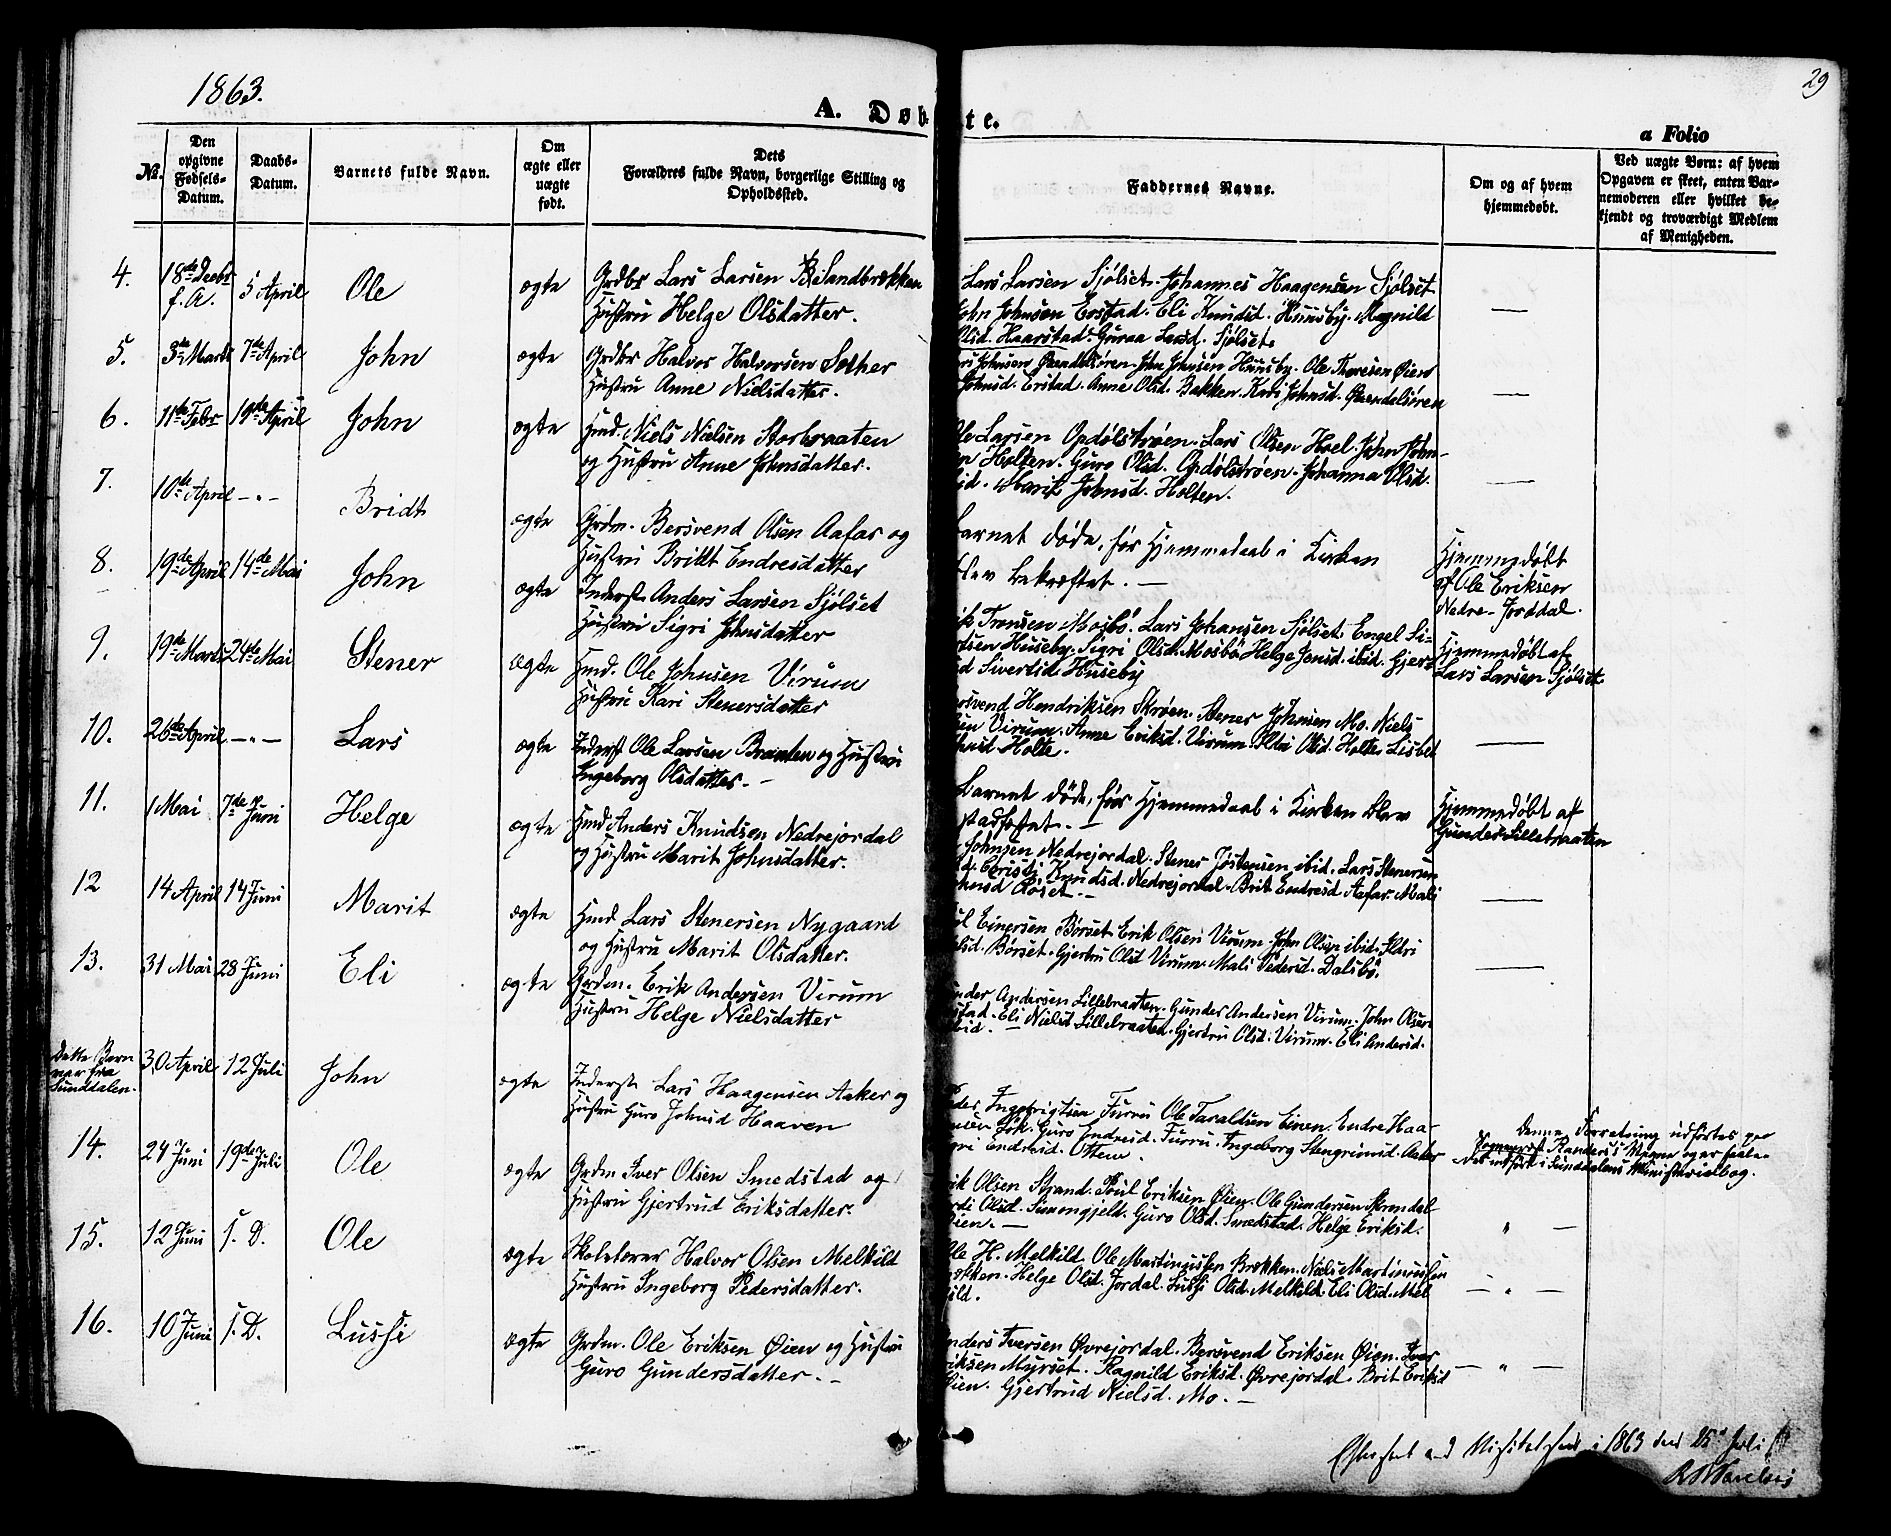 1863.
29
A. Døbte.
a Folio
No.
Den opgivne Fødsels-Datum.
Daabs-Datum.
Barnets fulde Navn.
Om ægte eller uægte født.
Dets Forældres fulde Navn, borgerlige Stilling og Opholdssted.
Faddernes Navne.
Om og af hvem hjemmedøbt.
Ved uægte Børn: af hvem Opgaven er skeet, enten Barnemoderen eller hvilket bekjendt og troværdigt Medlem af Menigheden.
4. 18de Decbr f. A. 5 April Ole ægte Grdbr Lars Larsen Sandbrækken
Hustru Helge Olsdatter.
Lars Larsen Sjølset. Johannes Haagensen Sjølset
John Johnsen Erstad. Eli Knudsd. Huusby. Magnild
Olsd. Haarstad. Guraa Larsd. Sjølset.
5. 3de Marts 7de April John ægte Grdbr Halvor Halvorsen Sæther
Hustru Anne Nielsdatter.
Johnsen Øvendalsøren. John Johnsen Huusby. Ole Thoresen Øien
Johnsd. Erstad. Anne Olsd. Bakken. Kari Johnsd. Øvendalsøren
6. 11te Febr 19de April John ægte Hmd. Niels Nielsen Storbraaten
og Hustru Anne Johnsdatter.
Ole Larsen Opdølstrøen. Lars Olsen Hoel. John John-
Holten. Guro Olsd. Opdølstrøen. Johanna Olsd.
Marit Johnsd. Holten.
7. 10de April -"- Bridt ægte Grdm. Bersvend Olsen Aafar og
Hustru Brit Endresdatter
Barnet døde, før Hjemmedaab i Kirken
blev bekræftet. —
Hjemmedøbt
af Ole Eriksen
Nedre-Jorddal.
8. 19de April 14de Mai John ægte Inderst Anders Larsen Sjølset
Hustru Sigri Johnsdatter
Tronsen Mosbø. Lars Johansen Sjølset. Engel Si-
Huseby. Sigri Olsd. Mosbø. Helge Jonsd. ibid. Gjer-
Sivertsd. Huseby
Hjemmedøbt af
Lars Larsen Sjølset.
9. 19de Marts 24de Mai Stener ægte Hmd. Ole Johnsen Virum
Hustru Kari Stenersdatter
Hendriksen Skrøen. Stener Johnsen Mo. Niels
Virum. Anne Eriksd. Virum. Ildri Olsd. Holte. Lisbet
Holte.
10. 26de April -"- Lars ægte Inderst Ole Larsen Braaten og Hustru
Ingeborg Olsdatter. —
Barnet døde, før Hjemmedaab i Kirken blev
stadfæstet. —
Hjemmedøbt af
Gunder Lillebraaten
11. 1 Mai 7de Juni Helge ægte Hmd Anders Knudsen Nedrejordal
og Hustru Marit Johnsdatter.
Johnsen Nedrejordal. Stener Jøstensen ibid. Lars Stenersen
Christi Knudsd. Nedrejordal. Brit Endresd. Aafar. Mali
Røset. —
12 14 April 14 Juni Marit ægte Hmd Lars Stenersen Nygaard
og Hustru Marit Olsdatter.
Einersen Børset. Erik Olsen Virum. John Olsen ibid. Ildri
Olsd. Børset. Gjertru Olsd Virum. Mali Pedersd. Dalsbø.
13. 31 Mai 28 Juni Eli ægte Grdm. Erik Andersen Virum
Hustru Helge Nielsdatter
Gunder Andersen Lillebraaten. Gunder Andersen Virum. John Olsen
Eli Nielsd Lillebraaten. Gjertru Olsd. Virum. Eli Andersd.
Dette Barn
var fra
Sunddalen.
30 April 12 Juli John ægte Inderst Lars Haagensen Aaker og
Hustru Guro Johnsd Haaven
Peder Ingebrigtsen Furru. Ole Taraldsen Einen. Endre Haa-
Guro Endresd. Furru. Ingeborg Stengrimsd. Aaker
Endresd. Ottem.
Denne Forretning udførtes
14. 24 Juni 19de Juli Ole ægte Grdm Iver Olsen Smedstad og
Hustru Gjertrud Eriksdatter.
Erik Olsen Strand. Poul Eriksen Øien. Ole Gundersen Skrondal
Olsd. Simengjeld. Guro Olsd. Smedstad. Helge Eriksd.
Øien. —
15. 12 Juni s. D. Ole ægte Skolelærer Halvor Olsen Melkild
Hustru Ingeborg Pedersdatter.
Ole H. Melkild. Ole Martinussen Brækken. Niels Martinussen
Brækken. Helge Olsd. Jordal. Lussi Olsd. Melkild. Eli Olsd. Mel
kild.
16. 10 Juni s. D. Lussi ægte Grdm. Ole Eriksen Øien og Hustru
Guro Gundersdatter. —
Anders Iversen Øvrejordal. Bersvend Eriksen Øien. Iver
Eriksen Myrset. Ragnild Eriksd. Øvrejordal. Brit Eriksd
Øien. Gjertrud Nielsd. Mo. —
Efterseet ved Visitatsen i 1863 den 25 Juli